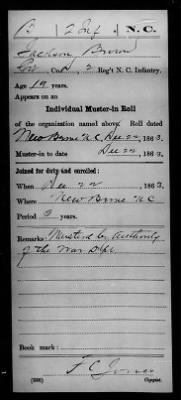 B | 2 Inf | N.C.
Jackson Brown
Pvt, Co. A, 2 Reg't N. C. Infantry.
Age 19 years.
Appears on an
Individual Muster-in Roll
of the organization named above. Roll dated
New Berne N.C. Dec 22, 1863.
Muster-in to date Dec 22, 1863.
Joined for duty and enrolled:
When Dec 22, 1863,
Where New Berne N.C.
Period 3 years.
Remarks: Mustered by Authority
of the War Dept.
Book mark:
F C Jones
Copyist.